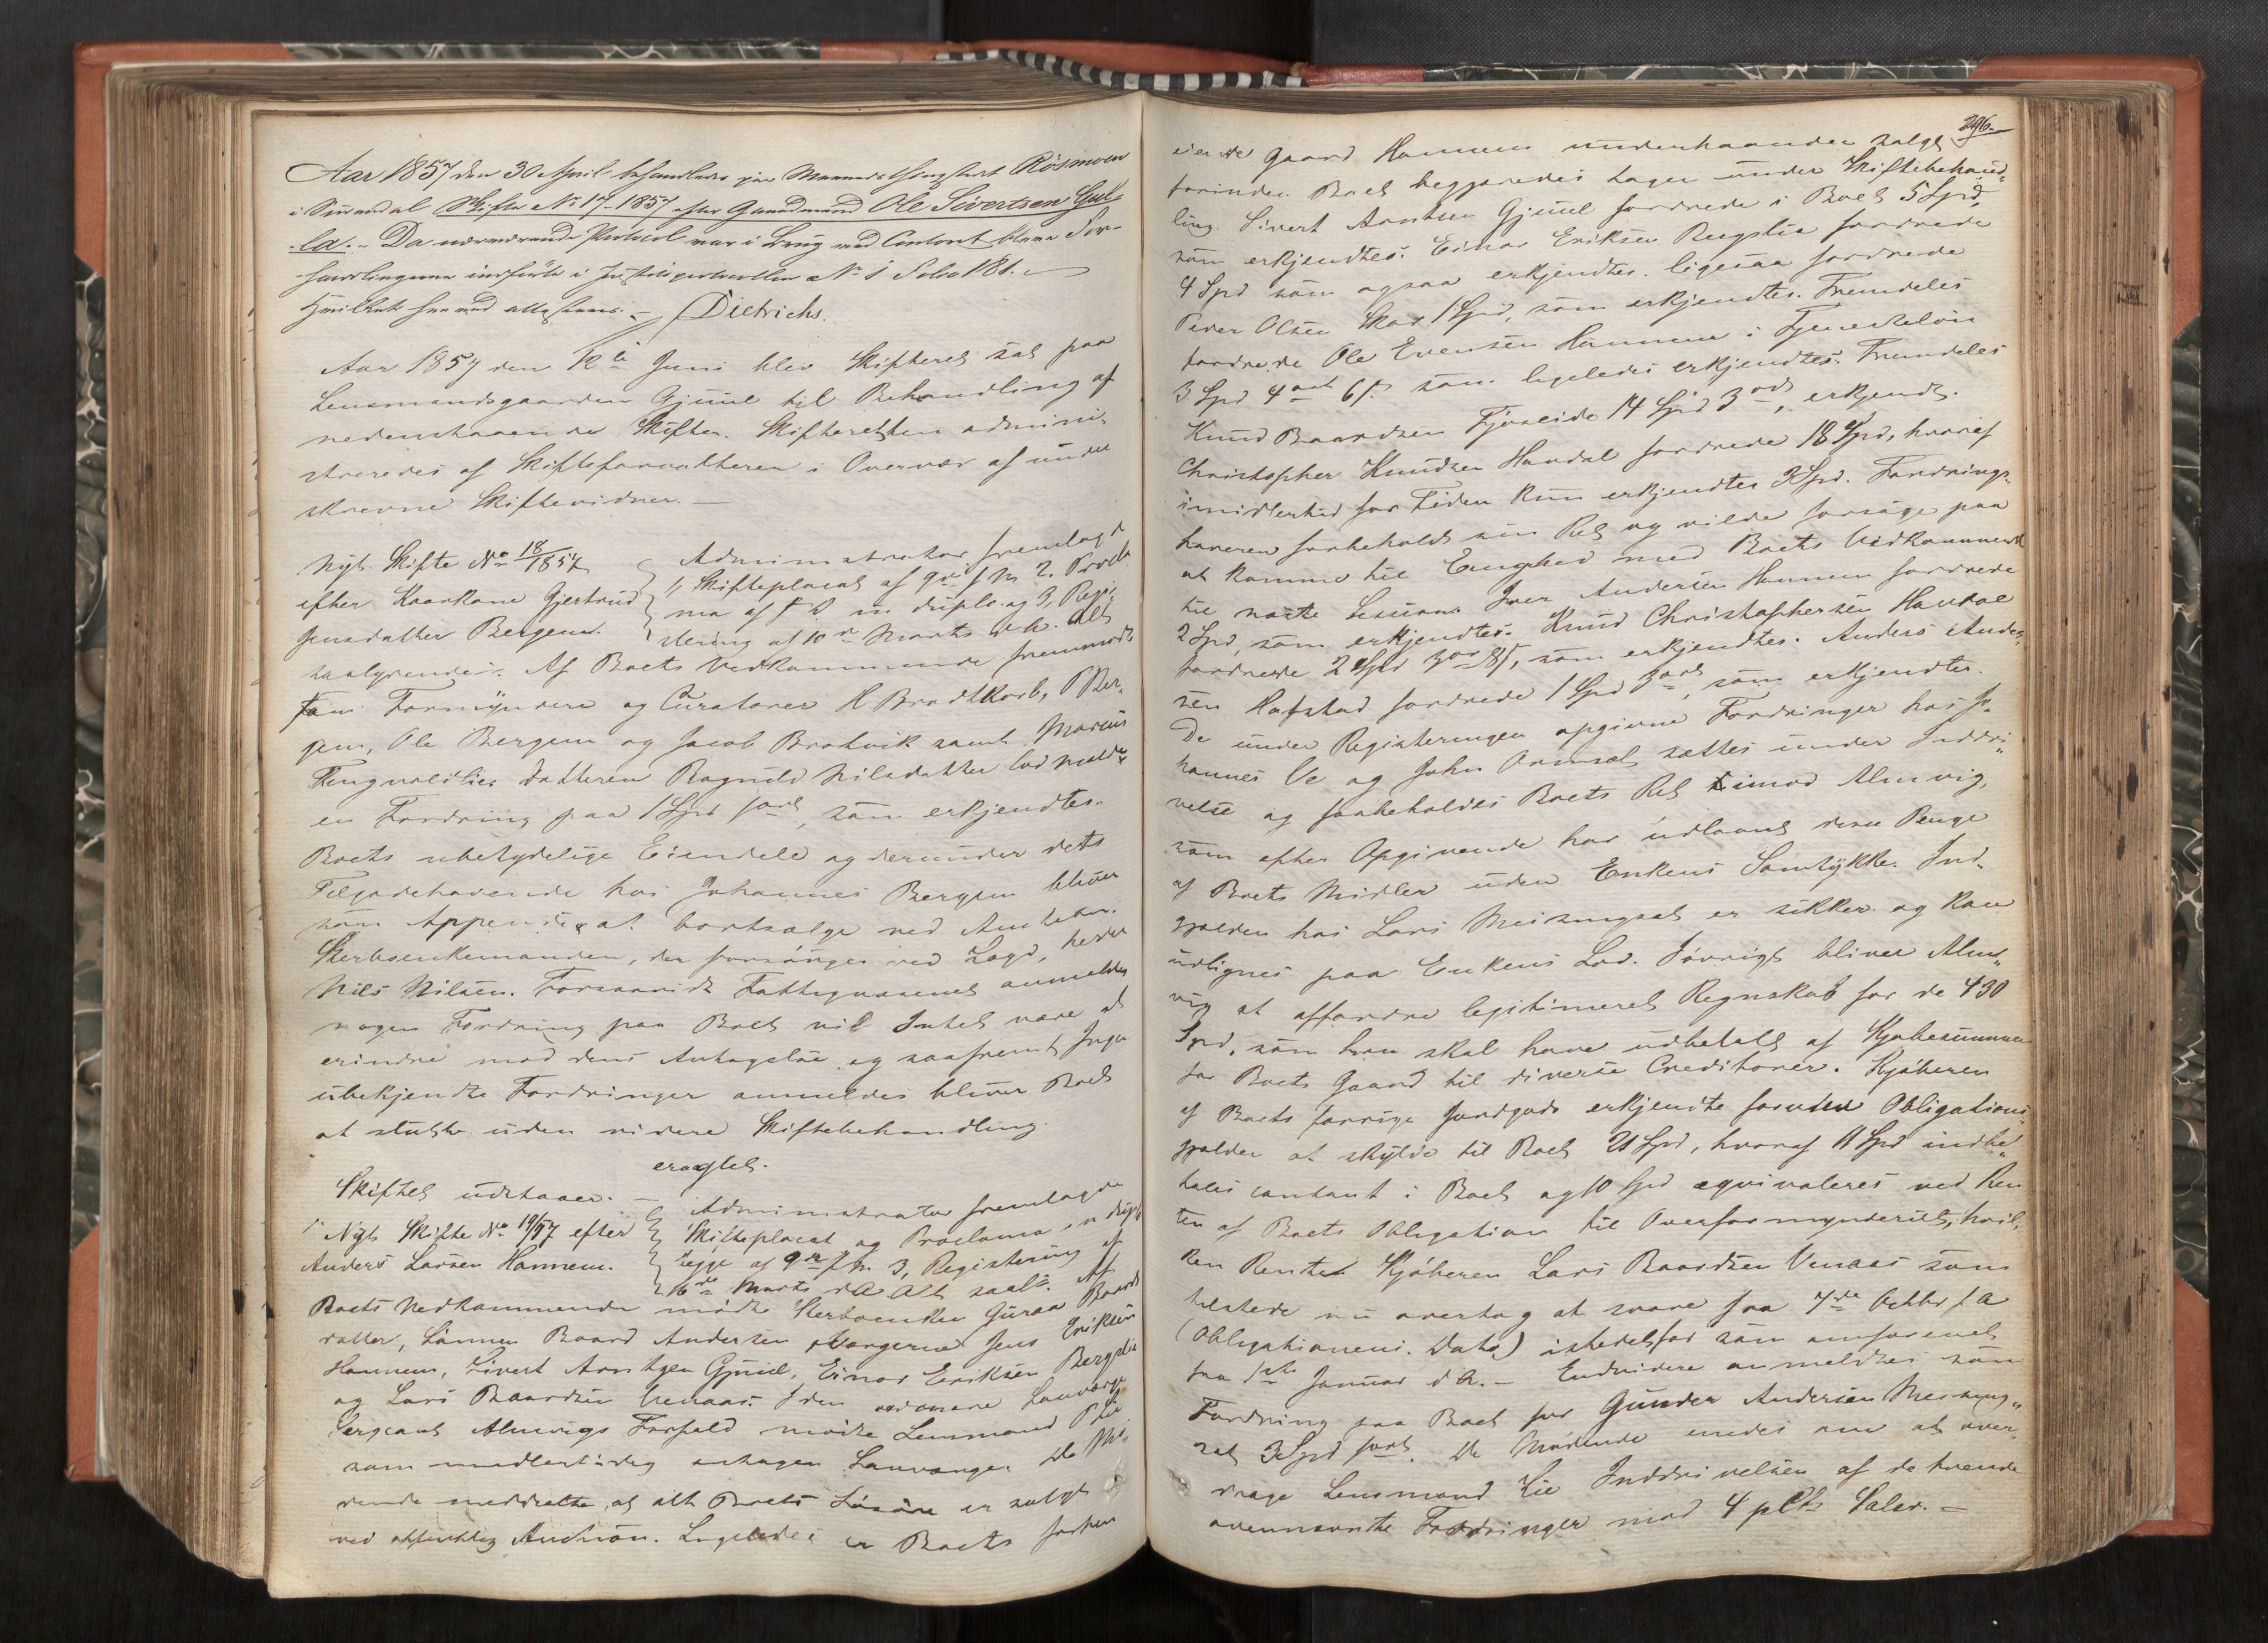 Aar 1857 den 30 April behandledes paa Thingstedet Røsmoen
i Surendal Skifte No 17 - 1857 efter Gaardmand Ole Sivertsen Gul-
la. - Da nærværende Protocol var i Brug ved Contoret bleve For-
handlingerne indførte i Justitsprotocollen No 1 Folio 181. -
Hvilket herved attesteres. - Dietrichs.
Aar 1857 den 12te Juni blev Skifteret sat paa
Lensmandsgaarden Gjúúl til Behandling af
nedenstaaende Skifter. Skifteretten admini-
streredes af Skifteforvalteren i Overvær af under
skrevne Skiftevidner. -
Nyt Skifte No 18/1857
efter Kaarkone Gjertrud
Jensdatter Bergem.
Administrator fremlagde
1, Skifteplacat af 9de f M 2. Procla
ma af f D in duplo og 3, Regi-
stering af 10de Marts d A. Alt
saalydende: Af Boets Vedkommende fremmødte
som Formyndere og Curatorer H Brodtkorb, P Ber-
gem, Ole Bergem og Jacob Brøtvik samt Marcus
Tingvoldlien. Datteren Ragnild Nilsdatter lod melde
en Fordring paa 1 Spd 1 ort, som erkjendtes.
Boets ubetydelige Eiendele og derunder dets
Tilgodehavende hos Johannes Bergem bliver
som Appendix at bortsælge ved Auction.
Sterboenkemanden, der forsørges ved Lægd, heder
Nils Nilsen. Forsaavidt Fattigvæsenet anmelder
nogen Fordring paa Boet vil Intet være at
erindre mod dens Antagelse og saafremt Inge
ubekjendte Fordringer anmeldes bliver Boet
at slutte uden videre Skiftebehandling.
eragtet.
Skiftet udstaaer. -
Nyt Skifte No 19/57 efter
Anders Larsen Hannem.
Administrator fremlagde
Skifteplacat og Proclama in duplo
begge af 9de f M 3, Registering af
16de Marts d A Alt saal: Af
Boets Vedkommende mødte Sterboenken Guroe Baards
datter, Sønnen Baard Andersen Værgerne Jens Eriksen
Hannem, Sivert Arntsen Gjúúl, Einar Eriksen Bergslie
og Lars Baardsen Venaas. I den ordonære Laugværge
Sergeant Almvigs Forfald mødte Lensmand P Lie
som midlertidig antagen Laugværge. De Mø-
dende meddeelte, at alt Boets Løsøre er solgt
ved offentlig Auction. Ligeledes er Boets forhen
296.
eiende Gaard Hannem underhaanden solgt
forinden Boet begjæredes tagen under Skiftebehand-
ling. Sivert Arntsen Gjúúl fordrede i Boet 5 Spd,
som erkjendtes. Einar Eriksen Bergslie fordrede
4 Spd som ogsaa erkjendtes. Ligesaa fordrede
Peder Olsen Skar 1 Spd, som erkjendtes. Fremdeles
fordrede Ole Evensen Hannem i Tjenesteløn
3 Spd 4 ort 6 s. som ligeledes erkjendtes. Fremdeles
Knud Baardsen Fjøseide 14 Spd 3 ort, erkjendt.
Christopher Knudsen Handal fordrede 18 Spd, hvoraf
imidlertid for Tiden kun erkjendtes 3 Spd. Fordrings-
haveren forbeholdt sin Ret og vilde forsøge paa
at komme til Enighed med Boets Vedkommende
til næste Session. Iver Andersen Hannem fordrede
2 Spd, som erkjendtes. Knud Christophersen Handal
fordrede 2 Spd 3 ort 8 s, som erkjendtes. Anders Ander-
sen Hafstad fordrede 1 Spd 3 ort, som erkjendtes.
De under Registeringen opgivne Fordringer hos Jo-
hannes Ve og John Ormsæt sættes under Inddri-
velse og forbeholdes Boets Ret imod Almvig,
som efter Opgivende har udlaant disse Penge
af Boets Midler uden Enkens Samtykke. Ind-
gjælden hos Lars Meisingset er sikker og kan
udlignes paa Enkens Lod. Iøvrigt bliver Alm-
vig at affordre legitimeret Regnskab for de 430
Spd, som han skal have udbetalt af Kjøbesummen
for Boets Gaard til diverse Creditorer. Kjøberen
af Boets forrige Jordgods erkjendte foruden Obligations-
gjælden at skylde til Boet 21 Spd, hvoraf 11 Spd indbe-
tales contant i Boet og 10 Spd æqvivaleres ved Ren
ten af Boets Obligation til Overformynderiet, hvil-
ken Rente Kjøberen Lars Baardsen Venaas som
tilstede nu overtog at svare fra 7de Octbr f A
(Obligationens Dato) istedetfor som omforenet
fra 1ste Januar d A. - Endvidere anmeldtes som
Fordring paa Boet for Gunder Andersen Meising-
set 3 Spd 1 ort. De Mødende enedes om at over-
drage Lensmand Lie Inddrivelsen af de tvende
ovennævnte Fordringer mod 4 pCts Salær. -